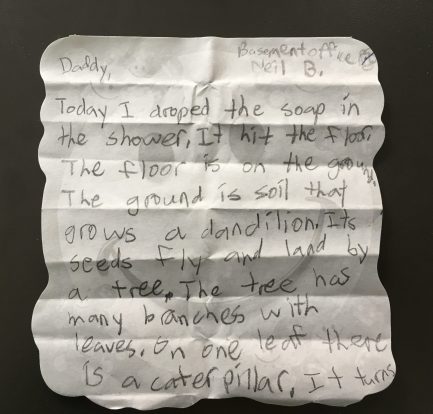 Basement office
Neil B.
Daddy,
Today I droped the soap in
the shower. It hit the floor.
The floor is on the ground.
The ground is soil that
grows a dandilion. Its
seeds fly and land by
a tree. The tree has
many branches with
leaves. On one leaf there
is a caterpillar. It turns